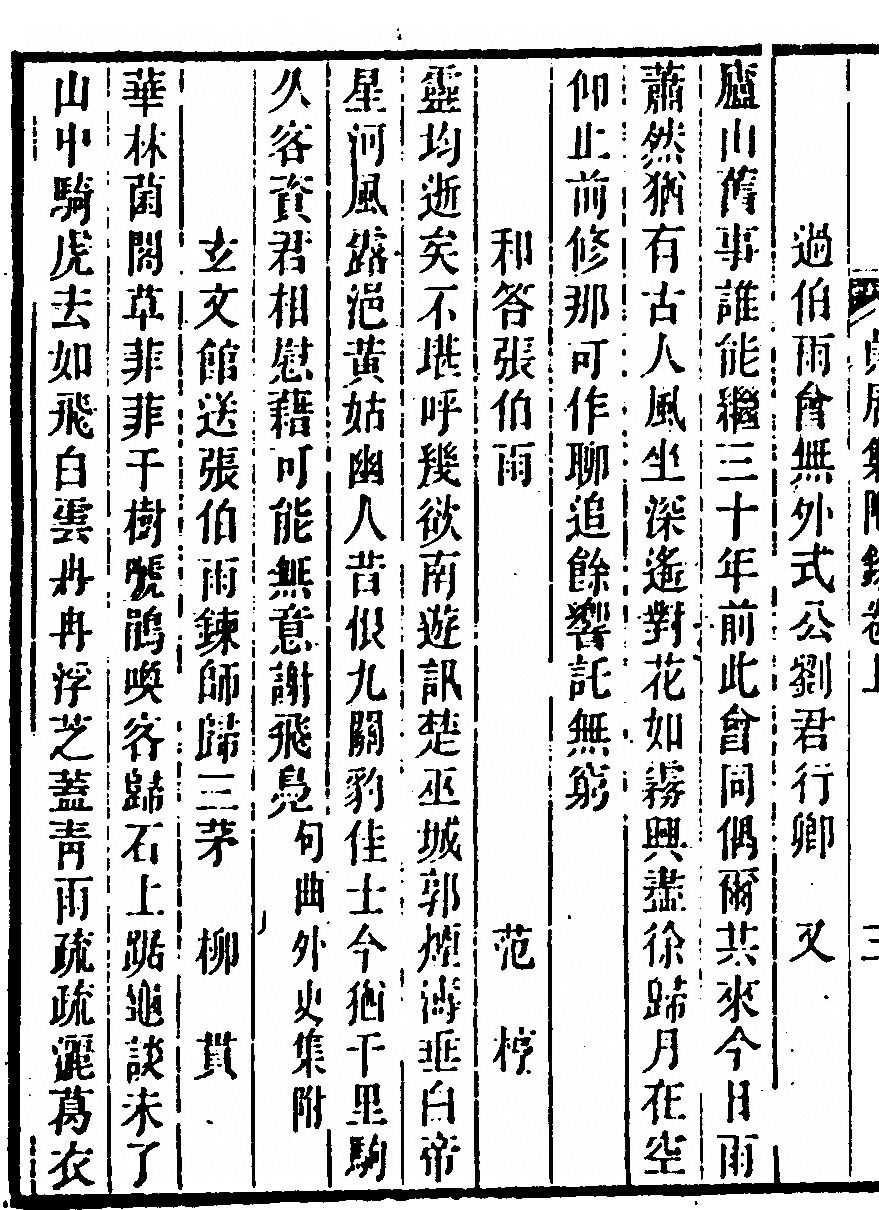 貞居集附錄卷上 三
過伯雨會無外式公劉君行卿 又
廬山舊事誰能繼三十年前此會同偶爾共來今日雨
蕭然猶有古人風坐深遙對花如霧興盡徐歸月在空
仰止前修那可作聊追餘響託無窮
和答張伯雨 范梈
靈均逝矣不堪呼幾欲南遊訊楚巫城郭煙濤垂白帝
星河風露浥黃姑幽人昔恨九關豹佳士今猶千里駒
久客資君相慰藉可能無意謝飛鳧 句曲外史集附
玄文館送張伯雨鍊師歸三茅 柳貫
華林菌閣草菲菲千樹號鵑喚客歸石上踞龜談未了
山中騎虎去如飛白雲冉冉浮芝蓋靑雨疏疏灑葛衣